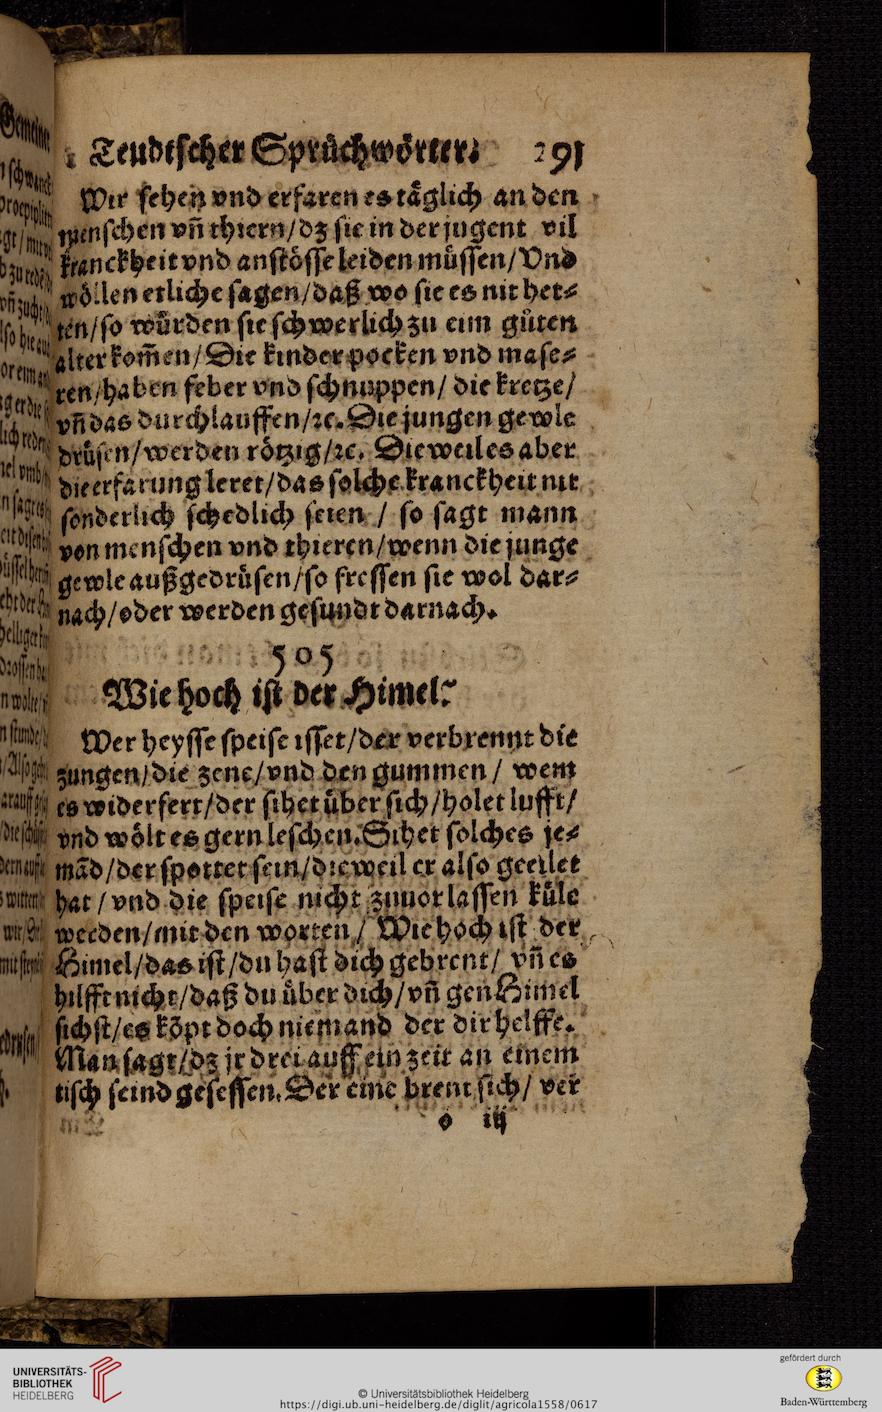 Teudtſcher Sprůchwörter. 291
Wir ſehen vnd erfaren es täglich an den
menſchen vñ thiern/dz ſie in der jugent vil
kranckheit vnd anſtöſſe leiden müſſen/Vnd
wöllen etliche ſagen/daß wo ſie es nit het⸗
ten/ſo würden ſie ſchwerlich zu eim gůten
alter kom̃en/Die kinder pocken vnd maſe⸗
ren/haben feber vnd ſchnuppen/ die kretze/
vñ das durchlauffen/ꝛc. Die jungen gewle
drüſen/werden rötzig/ꝛc. Die weil es aber
die erfarung leret/das ſolche kranckheit nit
ſonderlich ſchedlich ſeien / ſo ſagt mann
von menſchen vnd thieren/wenn die junge
gewle außgedrüſen/ſo freſſen ſie wol dar⸗
nach/oder werden geſundt darnach.
505
Wie hoch iſt der Himel?
Wer heyſſe ſpeiſe iſſet/der verbrennt die
zungen/die zene/vnd den gummen / wem
es widerfert/der ſihet über ſich/holet lufft/
vnd wölt es gern leſchen. Sihet ſolches je⸗
mãd/der ſpottet ſein/dieweil er alſo geeilet
hat / vnd die ſpeiſe nicht zuuor laſſen küle
werden/mit den worten/ Wie hoch iſt der
Himel/das iſt/du haſt dich gebrent/ vñ es
hilfft nicht/daß du über dich/vñ gen Himel
ſichſt/es kõpt doch niemand der dir helffe.
Man ſagt/dz jr drei auff ein zeit an einem
tiſch ſeind geſeſſen. Der eine brent ſich/ ver
o iij
UNIVERSITÄTS-
BIBLIOTHEK
HEIDELBERG
© Universitätsbibliothek Heidelberg
https://digi.ub.uni-heidelberg.de/diglit/agricola1558/0617
gefördert durch
Baden-Württemberg